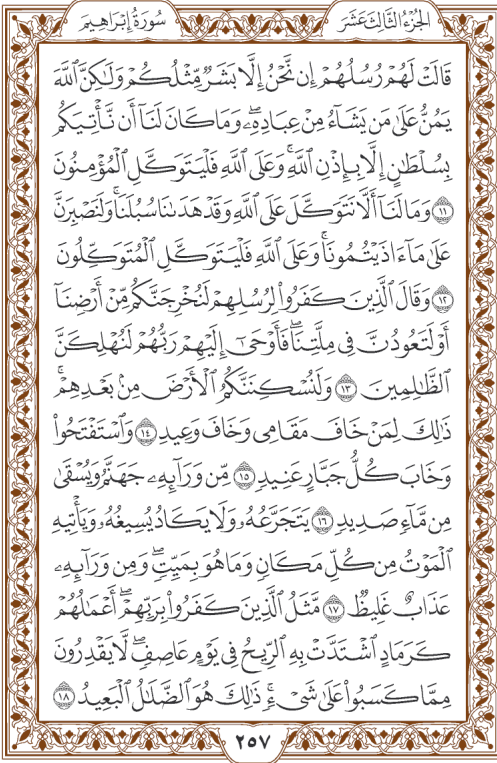 الجُزْءُ الثَّالِثَ عَشَرَ
سُورَةُ إِبْرَاهِيمَ
قَالَتْ لَهُمْ رُسُلُهُمْ إِن نَّحْنُ إِلَّا بَشَرٌ مِّثْلُكُمْ وَلَٰكِنَّ ٱللَّهَ
يَمُنُّ عَلَىٰ مَن يَشَآءُ مِنْ عِبَادِهِۦۖ وَمَا كَانَ لَنَآ أَن نَّأْتِيَكُم
بِسُلْطَٰنٍ إِلَّا بِإِذْنِ ٱللَّهِۚ وَعَلَى ٱللَّهِ فَلْيَتَوَكَّلِ ٱلْمُؤْمِنُونَ
١١ وَمَا لَنَآ أَلَّا نَتَوَكَّلَ عَلَى ٱللَّهِ وَقَدْ هَدَىٰنَا سُبُلَنَاۚ وَلَنَصْبِرَنَّ
عَلَىٰ مَآ ءَاذَيْتُمُونَاۚ وَعَلَى ٱللَّهِ فَلْيَتَوَكَّلِ ٱلْمُتَوَكِّلُونَ
١٢ وَقَالَ ٱلَّذِينَ كَفَرُوا۟ لِرُسُلِهِمْ لَنُخْرِجَنَّكُم مِّنْ أَرْضِنَآ
أَوْ لَتَعُودُنَّ فِى مِلَّتِنَاۖ فَأَوْحَىٰٓ إِلَيْهِمْ رَبُّهُمْ لَنُهْلِكَنَّ
ٱلظَّٰلِمِينَ ١٣ وَلَنُسْكِنَنَّكُمُ ٱلْأَرْضَ مِنۢ بَعْدِهِمْۚ
ذَٰلِكَ لِمَنْ خَافَ مَقَامِى وَخَافَ وَعِيدِ ١٤ وَٱسْتَفْتَحُوا۟
وَخَابَ كُلُّ جَبَّارٍ عَنِيدٍ ١٥ مِّن وَرَآئِهِۦ جَهَنَّمُ وَيُسْقَىٰ
مِن مَّآءٍ صَدِيدٍ ١٦ يَتَجَرَّعُهُۥ وَلَا يَكَادُ يُسِيغُهُۥ وَيَأْتِيهِ
ٱلْمَوْتُ مِن كُلِّ مَكَانٍ وَمَا هُوَ بِمَيِّتٍۖ وَمِن وَرَآئِهِۦ
عَذَابٌ غَلِيظٌ ١٧ مَّثَلُ ٱلَّذِينَ كَفَرُوا۟ بِرَبِّهِمْۖ أَعْمَٰلُهُمْ
كَرَمَادٍ ٱشْتَدَّتْ بِهِ ٱلرِّيحُ فِى يَوْمٍ عَاصِفٍۖ لَّا يَقْدِرُونَ
مِمَّا كَسَبُوا۟ عَلَىٰ شَىْءٍۚ ذَٰلِكَ هُوَ ٱلضَّلَٰلُ ٱلْبَعِيدُ ١٨
٢٥٧